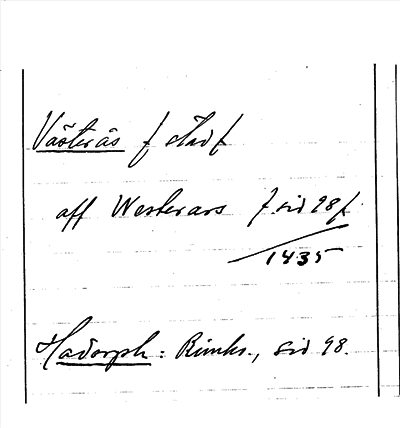 Västerås f stad f
aff Westerars f. sid 98 f.
1435
Hadorph: Rimkr., sid 98.